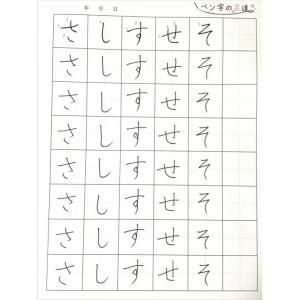 年 月 日
ペン字の花道
さ し す せ そ
さ し す せ そ
さ し す せ そ
さ し す せ そ
さ し す せ そ
さ し す せ そ
さ し す せ そ
さ し す せ そ